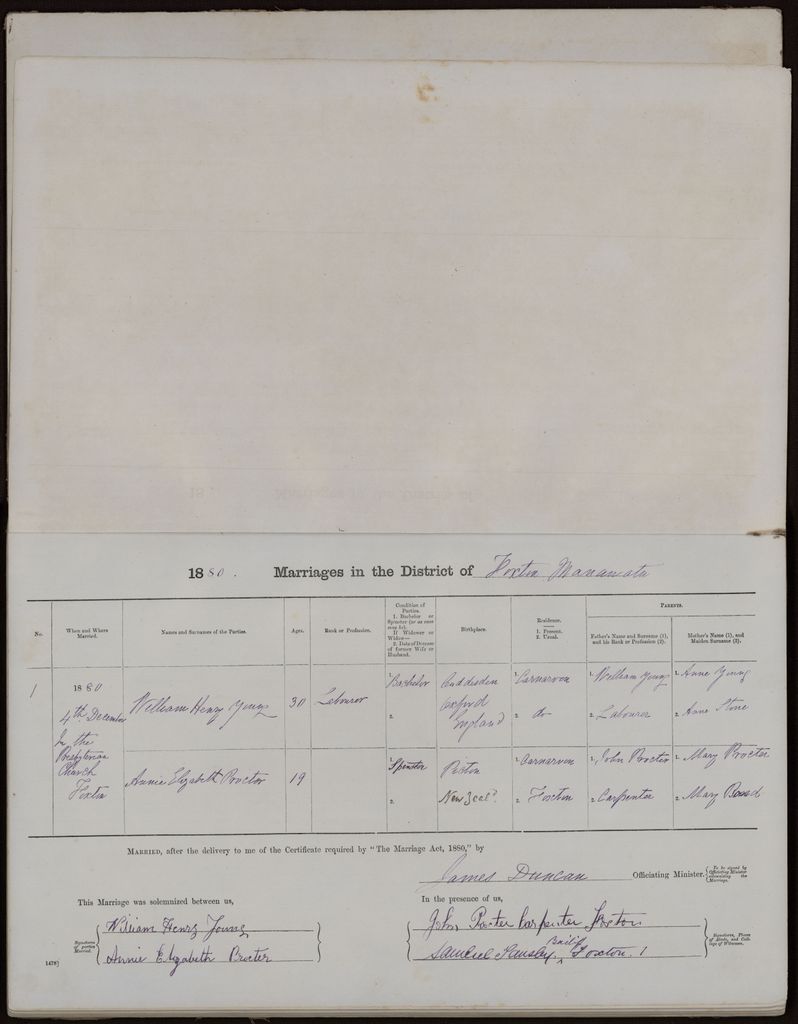 1880. Marriages in the District of Foxton Manawatu
No.
When and Where Married.
Names and Surnames of the Parties.
Ages.
Rank or Profession.
Condition of Parties.
1. Bachelor or Spinster (or as case may be).
If Widower or Widow—
2. Date of Decease of former Wife or Husband.
Birthplace.
Residence.
1. Present.
2. Usual.
PARENTS.
Father's Name and Surname (1), and his Rank or Profession (2).
Mother's Name (1), and Maiden Surname (2).
1
1880
4th December
In the
Presbyterian
Church
Foxton
William Henry Young
30
Labourer
1. Bachelor
2.
Cuddesden
Oxford
England
1. Carnarvon
2. do
1. William Young
2. Labourer
1. Anne Young
2. Anne Stone
Annie Elizabeth Procter
19
1. Spinster
2.
New Zeald.
1. Carnarvon
2. Foxton
1. John Procter
2. Carpenter
1. Mary Procter
2. Mary Bond
MARRIED, after the delivery to me of the Certificate required by "The Marriage Act, 1880," by
James Duncan
Officiating Minister.
To be signed by Officiating Minister solemnizing the Marriage.
This Marriage was solemnized between us,
Signatures of parties Married.
William Henry Young
Annie Elizabeth Procter
In the presence of us,
John Procter Carpenter Foxton
Samuel Bailiff Foxton.
Signatures, Place of Abode, and Calling of Witnesses.
1478]